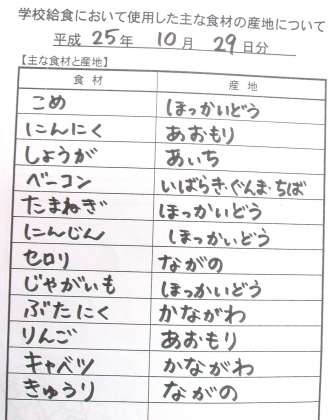 学校給食において使用した主な食材の産地について
平成 25年 10月 29日分
【主な食材と産地】
食材 産地
こめ ほっかいどう
にんにく あおもり
しょうが あいち
ベーコン いばらき・ぐんま・ちば
たまねぎ ほっかいどう
にんじん ほっかいどう
セロリ ながの
じゃがいも ほっかいどう
ぶたにく かながわ
りんご あおもり
キャベツ かながわ
きゅうり ながの